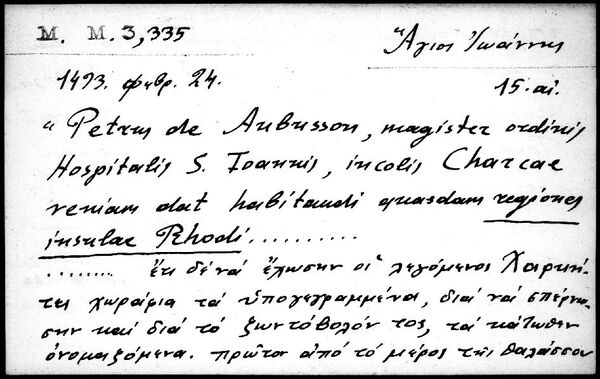 M. M. 3,335
Ἅγιος Ἰωάννης
1493. φεβρ. 24.
15. αἰ.
"Petrus de Aubusson, magister ordinis
Hospitalis S. Ioannis, incolis Charcae
veniam dat habitandi quasdam regiones
insulae Rhodi..........
........ ἔτι δὲ νά ἔχωσιν οἱ λεγόμενοι Χαρκή-
τες χωράφια τά ὑπογεγραμμένα, διά νά σπέρνω-
σιν καί διά τό ζωντόβολόν τος, τά κάτωθεν
ὀνομαζόμενα. πρῶτον ἀπό τό μέρος τῆς θαλάσσου